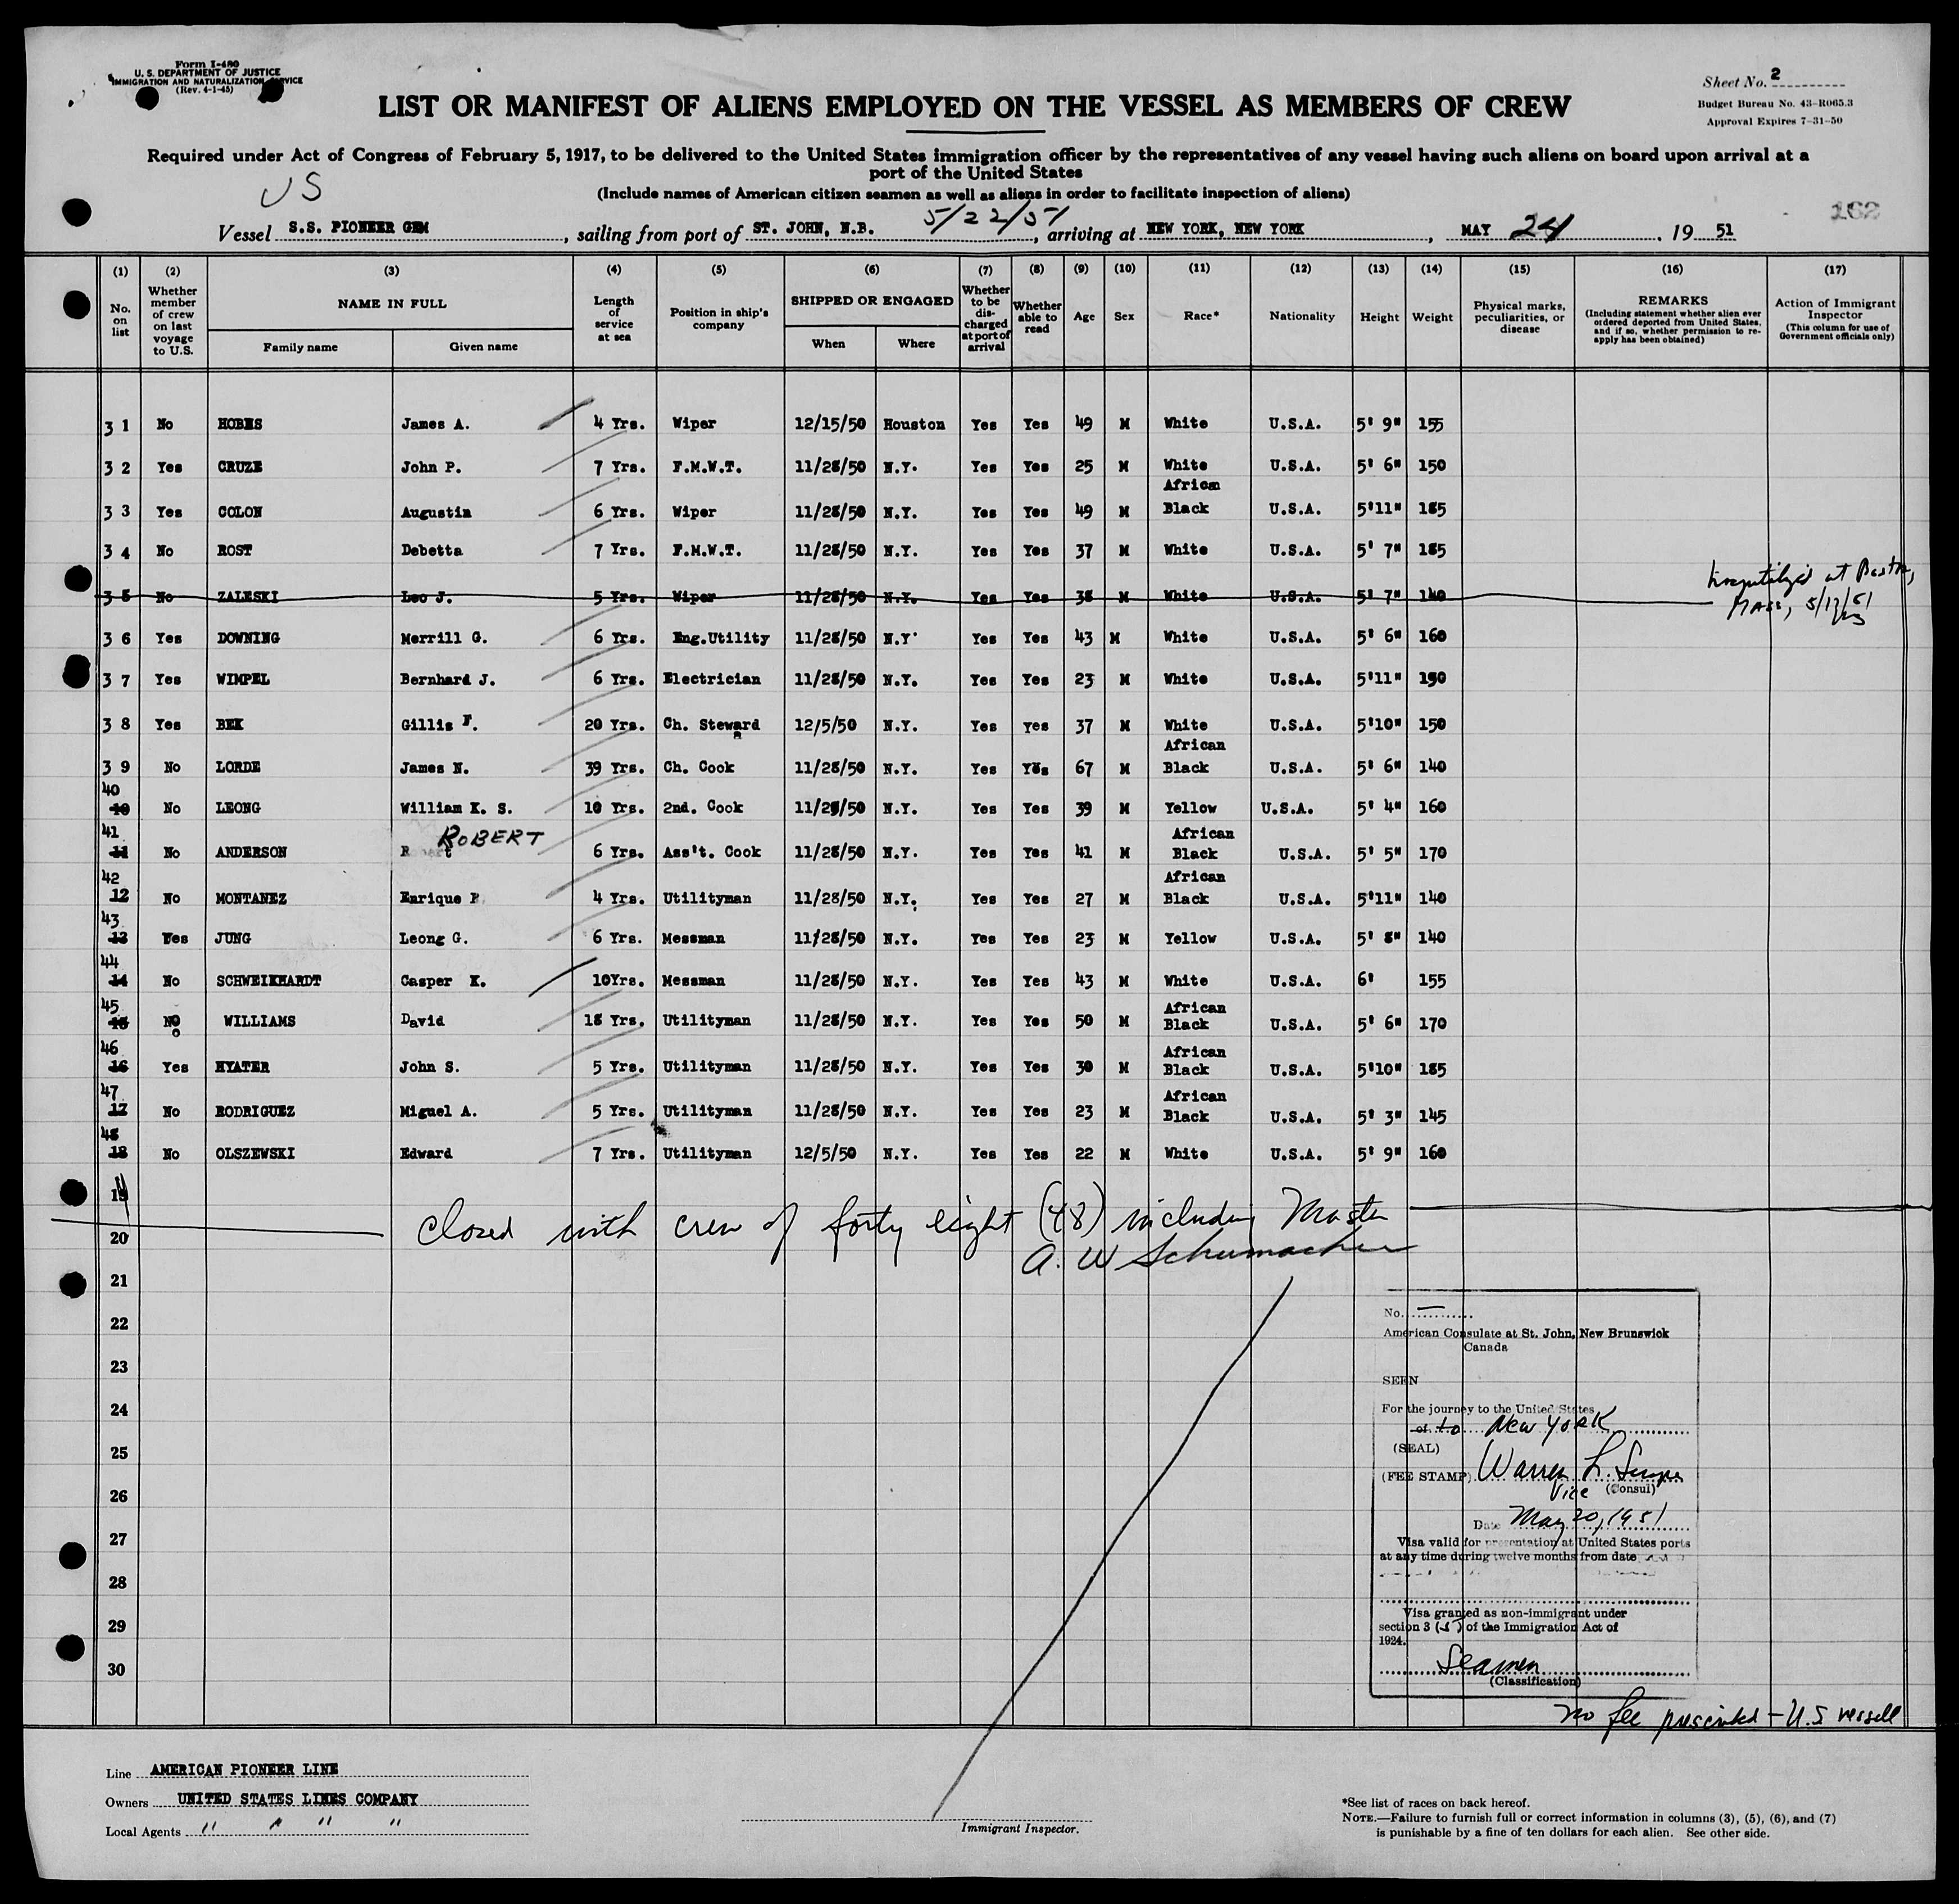 Form I-480
U. S. DEPARTMENT OF JUSTICE
IMMIGRATION AND NATURALIZATION SERVICE
(Rev. 4-1-45)
Sheet No. 2
Budget Bureau No. 43-R065.3
Approval Expires 7-31-50
LIST OR MANIFEST OF ALIENS EMPLOYED ON THE VESSEL AS MEMBERS OF CREW
Required under Act of Congress of February 5, 1917, to be delivered to the United States immigration officer by the representatives of any vessel having such aliens on board upon arrival at a
port of the United States
(Include names of American citizen seamen as well as aliens in order to facilitate inspection of aliens)
US
162
Vessel S.S. PIONEER GEM, sailing from port of ST. JOHN, N.B. 5/22/51, arriving at NEW YORK, NEW YORK, MAY 24, 19 51
(1) No. on list
(2) Whether member of crew on last voyage to U.S.
(3) NAME IN FULL Family name Given name
(4) Length of service at sea
(5) Position in ship's company
(6) SHIPPED OR ENGAGED When Where
(7) Whether to be discharged at port of arrival
(8) Whether able to read
(9) Age
(10) Sex
(11) Race*
(12) Nationality
(13) Height
(14) Weight
(15) Physical marks, peculiarities, or disease
(16) REMARKS (Including statement whether alien ever ordered deported from United States, and if so, whether permission to reapply has been obtained)
(17) Action of Immigrant Inspector (This column for use of Government officials only)
31 No HOBES James A. 4 Yrs. Wiper 12/15/50 Houston Yes Yes 49 M White U.S.A. 5' 9" 155
32 Yes CRUZE John P. 7 Yrs. F.M.W.T. 11/28/50 N.Y. Yes Yes 25 M White U.S.A. 5' 6" 150
33 Yes COLON Augustin 6 Yrs. Wiper 11/28/50 N.Y. Yes Yes 49 M African Black U.S.A. 5'11" 185
34 No ROST Debetta 7 Yrs. F.M.W.T. 11/28/50 N.Y. Yes Yes 37 M White U.S.A. 5' 7" 185
35 No ZALESKI Leo J. 5 Yrs. Wiper 11/28/50 N.Y. Yes Yes 38 M White U.S.A. 5' 7" 140 hospitalized at Boston, Mass, 5/17/51
36 Yes DOWNING Merrill G. 6 Yrs. Eng.Utility 11/28/50 N.Y. Yes Yes 43 M White U.S.A. 5' 6" 160
37 Yes WIMPEL Bernhard J. 6 Yrs. Electrician 11/28/50 N.Y. Yes Yes 23 M White U.S.A. 5'11" 190
38 Yes BEK Gillis F. 20 Yrs. Ch. Steward 12/5/50 N.Y. Yes yes 37 M White U.S.A. 5'10" 150
39 No LORDE James N. 39 Yrs. Ch. Cook 11/28/50 N.Y. Yes Yes 67 M African Black U.S.A. 5' 6" 140
40 10 No LEONG William K. S. 10 Yrs. 2nd. Cook 11/28/50 N.Y. Yes Yes 39 M Yellow U.S.A. 5' 4" 160
41 11 No ANDERSON ROBERT 6 Yrs. Ass't. Cook 11/28/50 N.Y. Yes Yes 41 M African Black U.S.A. 5' 5" 170
42 12 No MONTANEZ Enrique 4 Yrs. Utilityman 11/28/50 N.Y. Yes Yes 27 M African Black U.S.A. 5'11" 140
43 13 Yes JUNG Leong G. 6 Yrs. Messman 11/28/50 N.Y. Yes Yes 23 M Yellow U.S.A. 5' 8" 140
44 14 No SCHWEIKHARDT Casper K. 10Yrs. Messman 11/28/50 N.Y. Yes Yes 43 M White U.S.A. 6' 155
45 15 No WILLIAMS David 18 Yrs. Utilityman 11/28/50 N.Y. Yes Yes 50 M African Black U.S.A. 5' 6" 170
46 16 Yes HYATER John S. 5 Yrs. Utilityman 11/28/50 N.Y. Yes Yes 30 M African Black U.S.A. 5'10" 185
47 17 No RODRIGUEZ Miguel A. 5 Yrs. Utilityman 11/28/50 N.Y. Yes Yes 23 M African Black U.S.A. 5' 3" 145
48 18 No OLSZEWSKI Edward 7 Yrs. Utilityman 12/5/50 N.Y. Yes Yes 22 M White U.S.A. 5' 9" 160
19
closed with crew of forty eight (48) including Master
20
A. W Schumacher
21
22
23
24
25
26
27
28
29
30
No. —
American Consulate at St. John, New Brunswick
Canada
SEEN
For the journey to the United States
of to New York
(SEAL)
(FEE STAMP) Warren L.
Vice (Consul)
Date May 20, 1951
Visa valid for presentation at United States ports
at any time during twelve months from date
Visa granted as non-immigrant under
section 3 (5) of the Immigration Act of
1924.
Seamen
(Classification)
no fee prescribed - U.S vessell
Line AMERICAN PIONEER LINE
Owners UNITED STATES LINES COMPANY
Local Agents " " " "
Immigrant Inspector.
*See list of races on back hereof.
NOTE.—Failure to furnish full or correct information in columns (3), (5), (6), and (7)
is punishable by a fine of ten dollars for each alien. See other side.